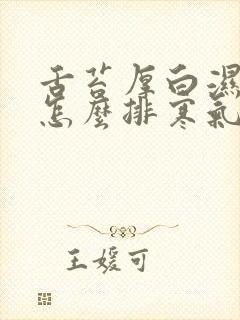 舌苔厚白濕
怎麼排寒氣
王媛可